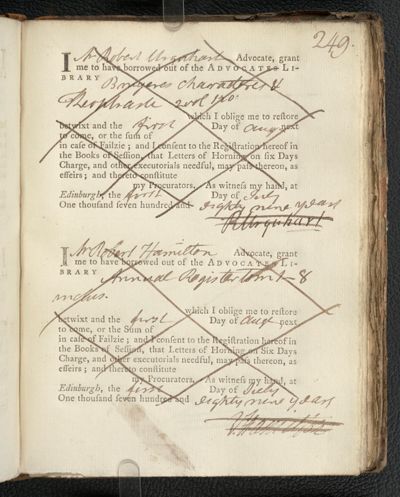 249.
I Mr Robert Urquhart Advocate, grant
me to have borrowed out of the ADVOCATES LI-
BRARY Bruyeres Characteres &
Theophraste 2 vol 12o.
which I oblige me to restore
betwixt and the first Day of Augt next
to come, or the Sum of
in case of Failzie; and I consent to the Registration hereof in
the Books of Session, that Letters of Horning on six Days
Charge, and other executorials needful, may pass thereon, as
effeirs; and thereto constitute
my Procurators. As witness my hand, at
Edinburgh, the first Day of July
One thousand seven hundred and eighty nine years
R Urquhart
I Mr Robert Hamilton Advocate, grant
me to have borrowed out of the ADVOCATES LI-
BRARY Annual Register tom 1-8
inclus.
which I oblige me to restore
betwixt and the first Day of Augt next
to come, or the Sum of
in case of Failzie; and I consent to the Registration hereof in
the Books of Session, that Letters of Horning on Six Days
Charge, and other executorials needful, may pass thereon, as
effeirs; and thereto constitute
my Procurators. As witness my hand, at
Edinburgh, the first Day of July
One thousand seven hundred and eighty nine years